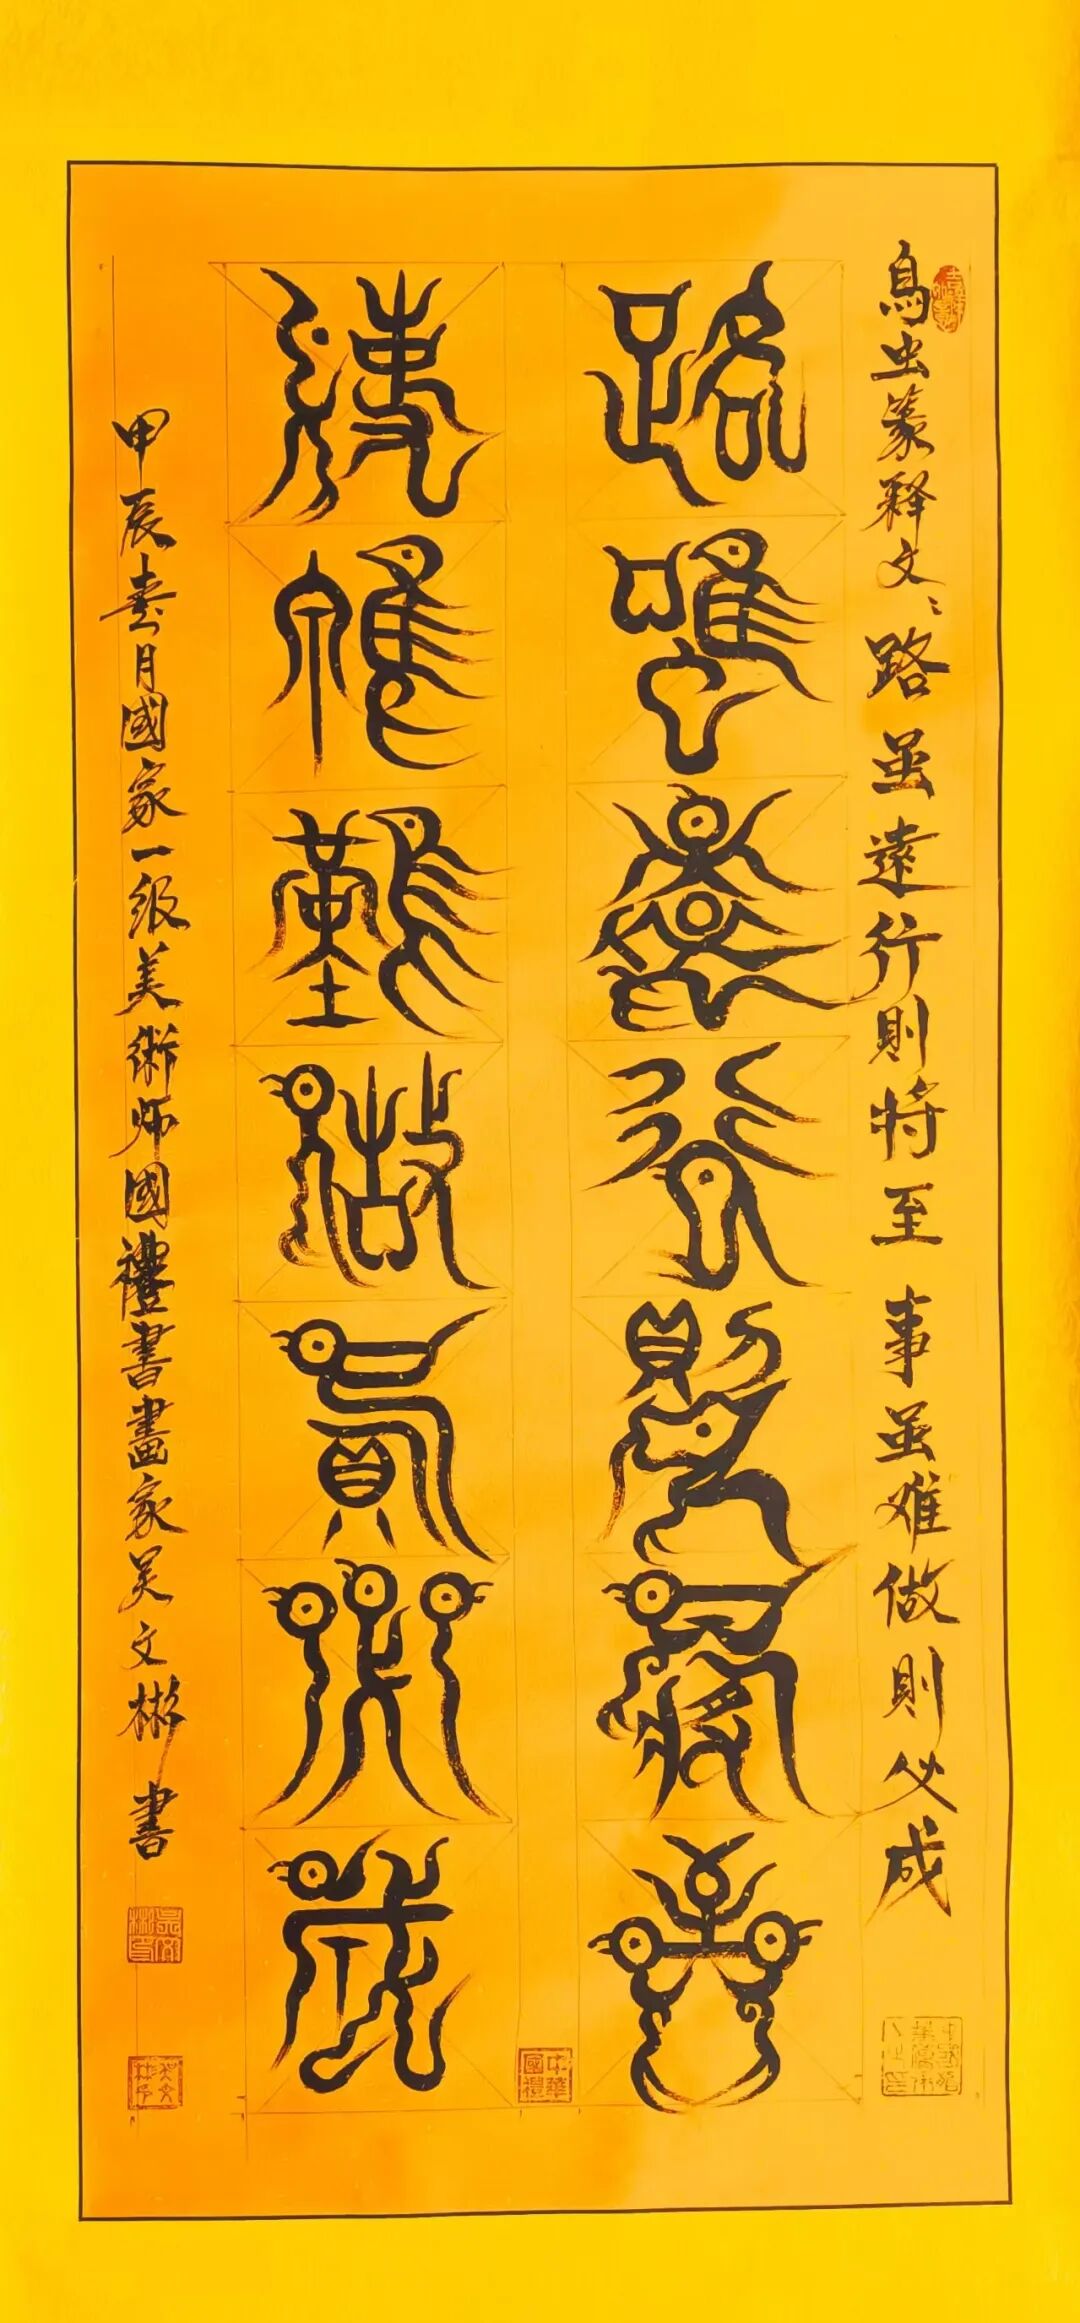 鳥虫篆释文：路虽遠行則将至 事虽难做則必成
路雖遠行則將至
事雖難做則必成
甲辰春月國家一级美術师國禮書畫家吴文彬書
中華國禮